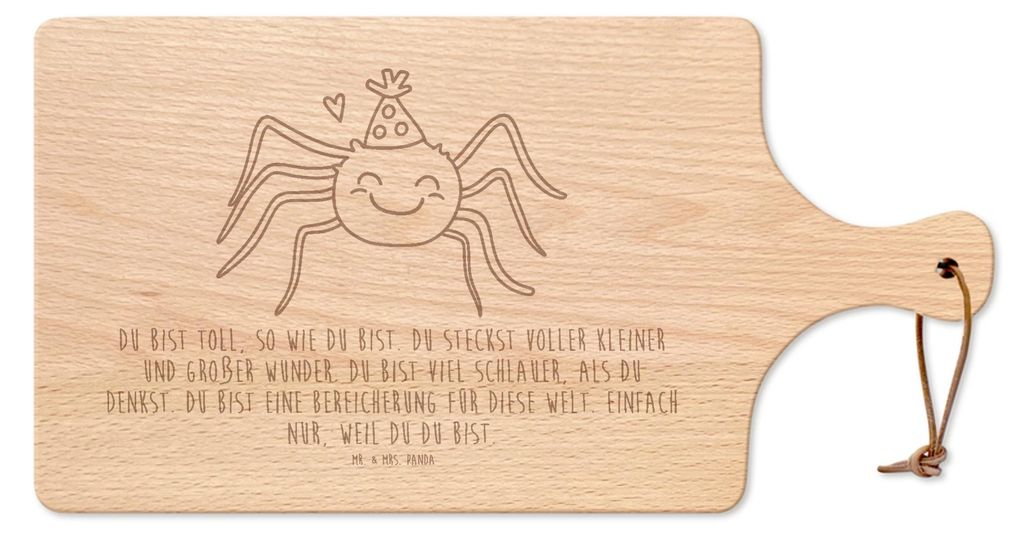 DU BIST TOLL, SO WIE DU BIST. DU STECKST VOLLER KLEINER
UND GROßER WUNDER. DU BIST VIEL SCHLAUER, ALS DU
DENKST. DU BIST EINE BEREICHERUNG FÜR DIESE WELT. EINFACH
NUR, WEIL DU DU BIST.
MR. & MRS. PANDA